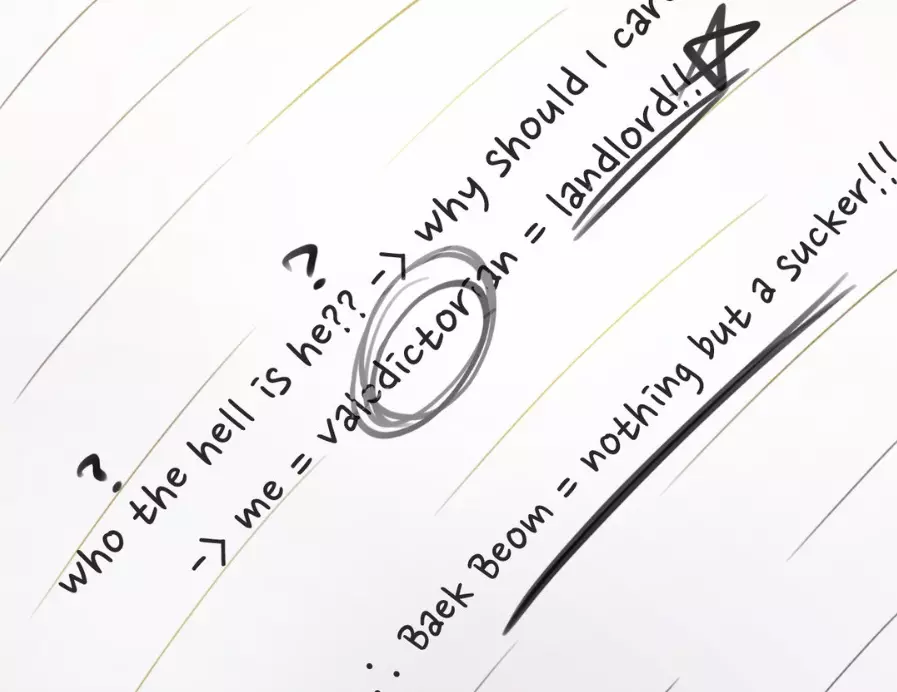 who the hell is he?? -> why should I car
-> me = valedictorian = landlord!!
∴ Baek Beom = nothing but a sucker!!!